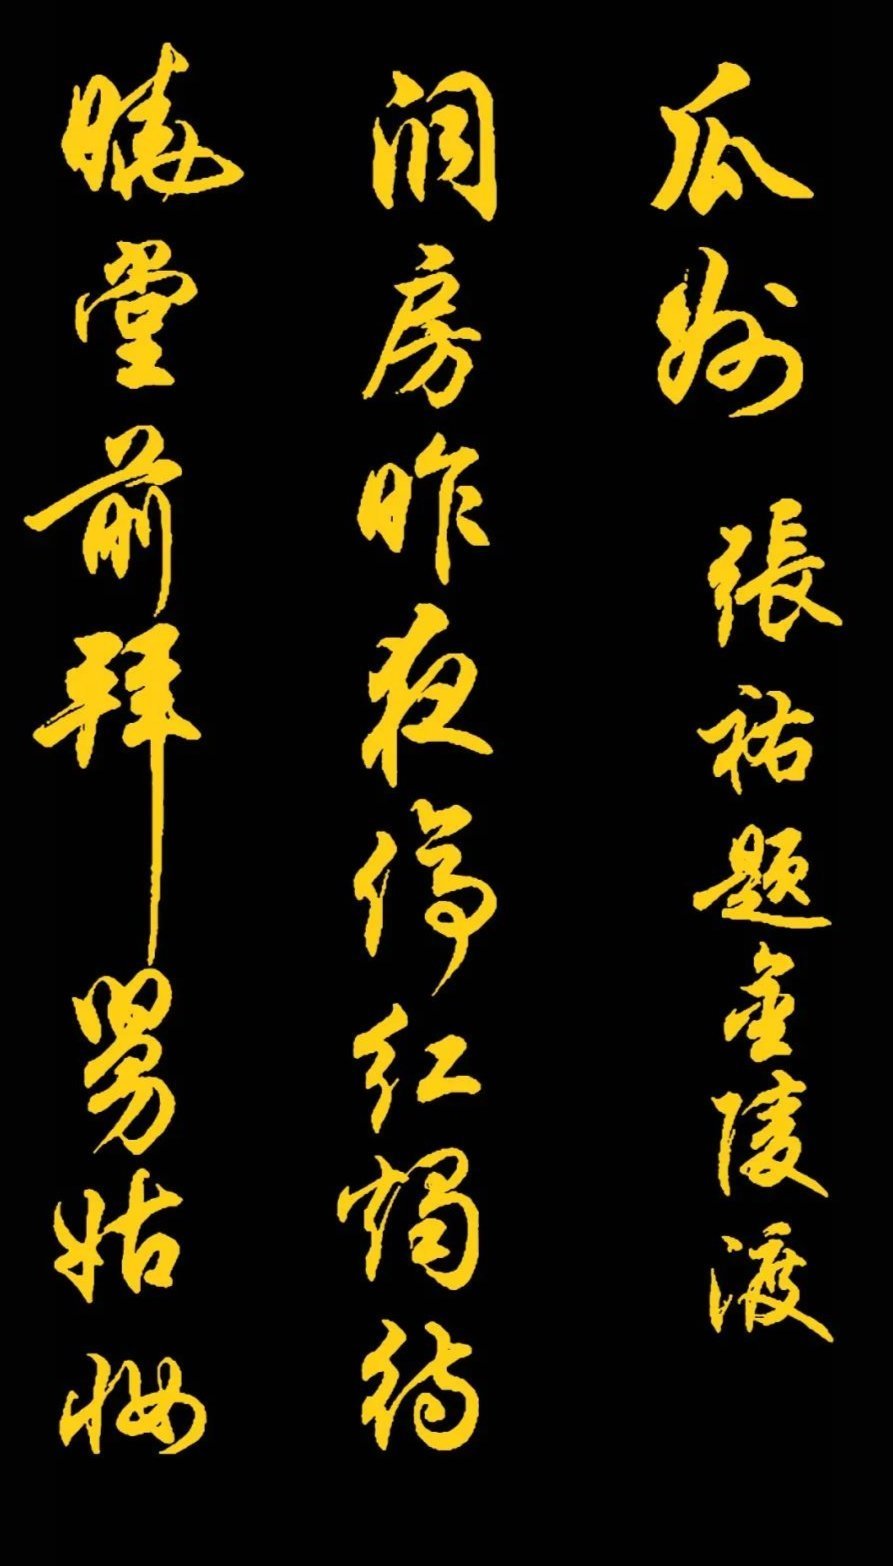 瓜州
張祜題金陵渡
洞房昨夜停红燭待
曉堂前拜舅姑妆